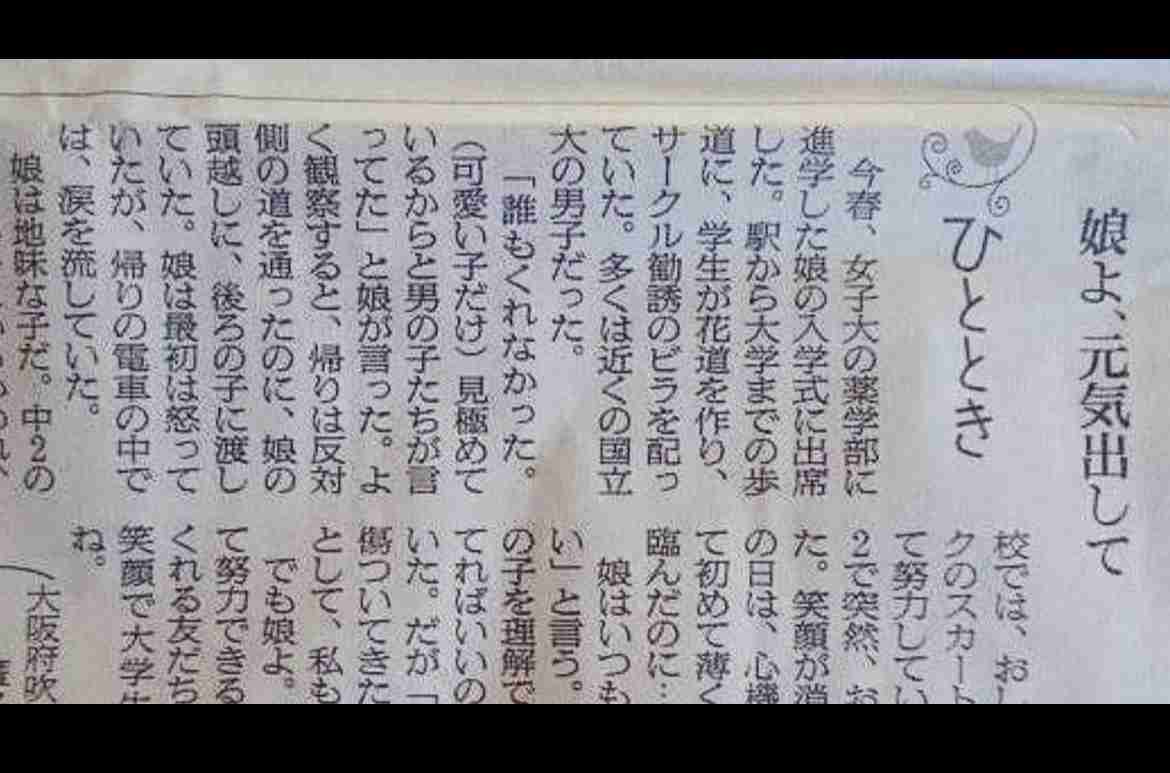 娘よ、元気出して
ひととき
今春、女子大の薬学部に
進学した娘の入学式に出席
した。駅から大学までの歩
道に、学生が花道を作り、
サークル勧誘のビラを配っ
ていた。多くは近くの国立
大の男子だった。
「誰もくれなかった。
(可愛い子だけ)見極めて
いるからと男の子たちが言
ってた」と娘が言った。よ
く観察すると、帰りは反対
側の道を通ったのに、娘の
頭越しに、後ろの子に渡し
ていた。娘は最初は怒って
いたが、帰りの電車の中で
は、涙を流していた。
娘は地味な子だ。中2の
校では、おし
クのスカート
て努力してい
2で突然、お
た。笑顔が消
の日は、心機
て初めて薄く
臨んだのに…
娘はいつも
い」と言う。
の子を理解で
てればいいの
いた。だが「
傷ついてきた
として、私も
でも娘よ。
て努力できる
くれる友だち
笑顔で大学生
ね。
(大阪府吹